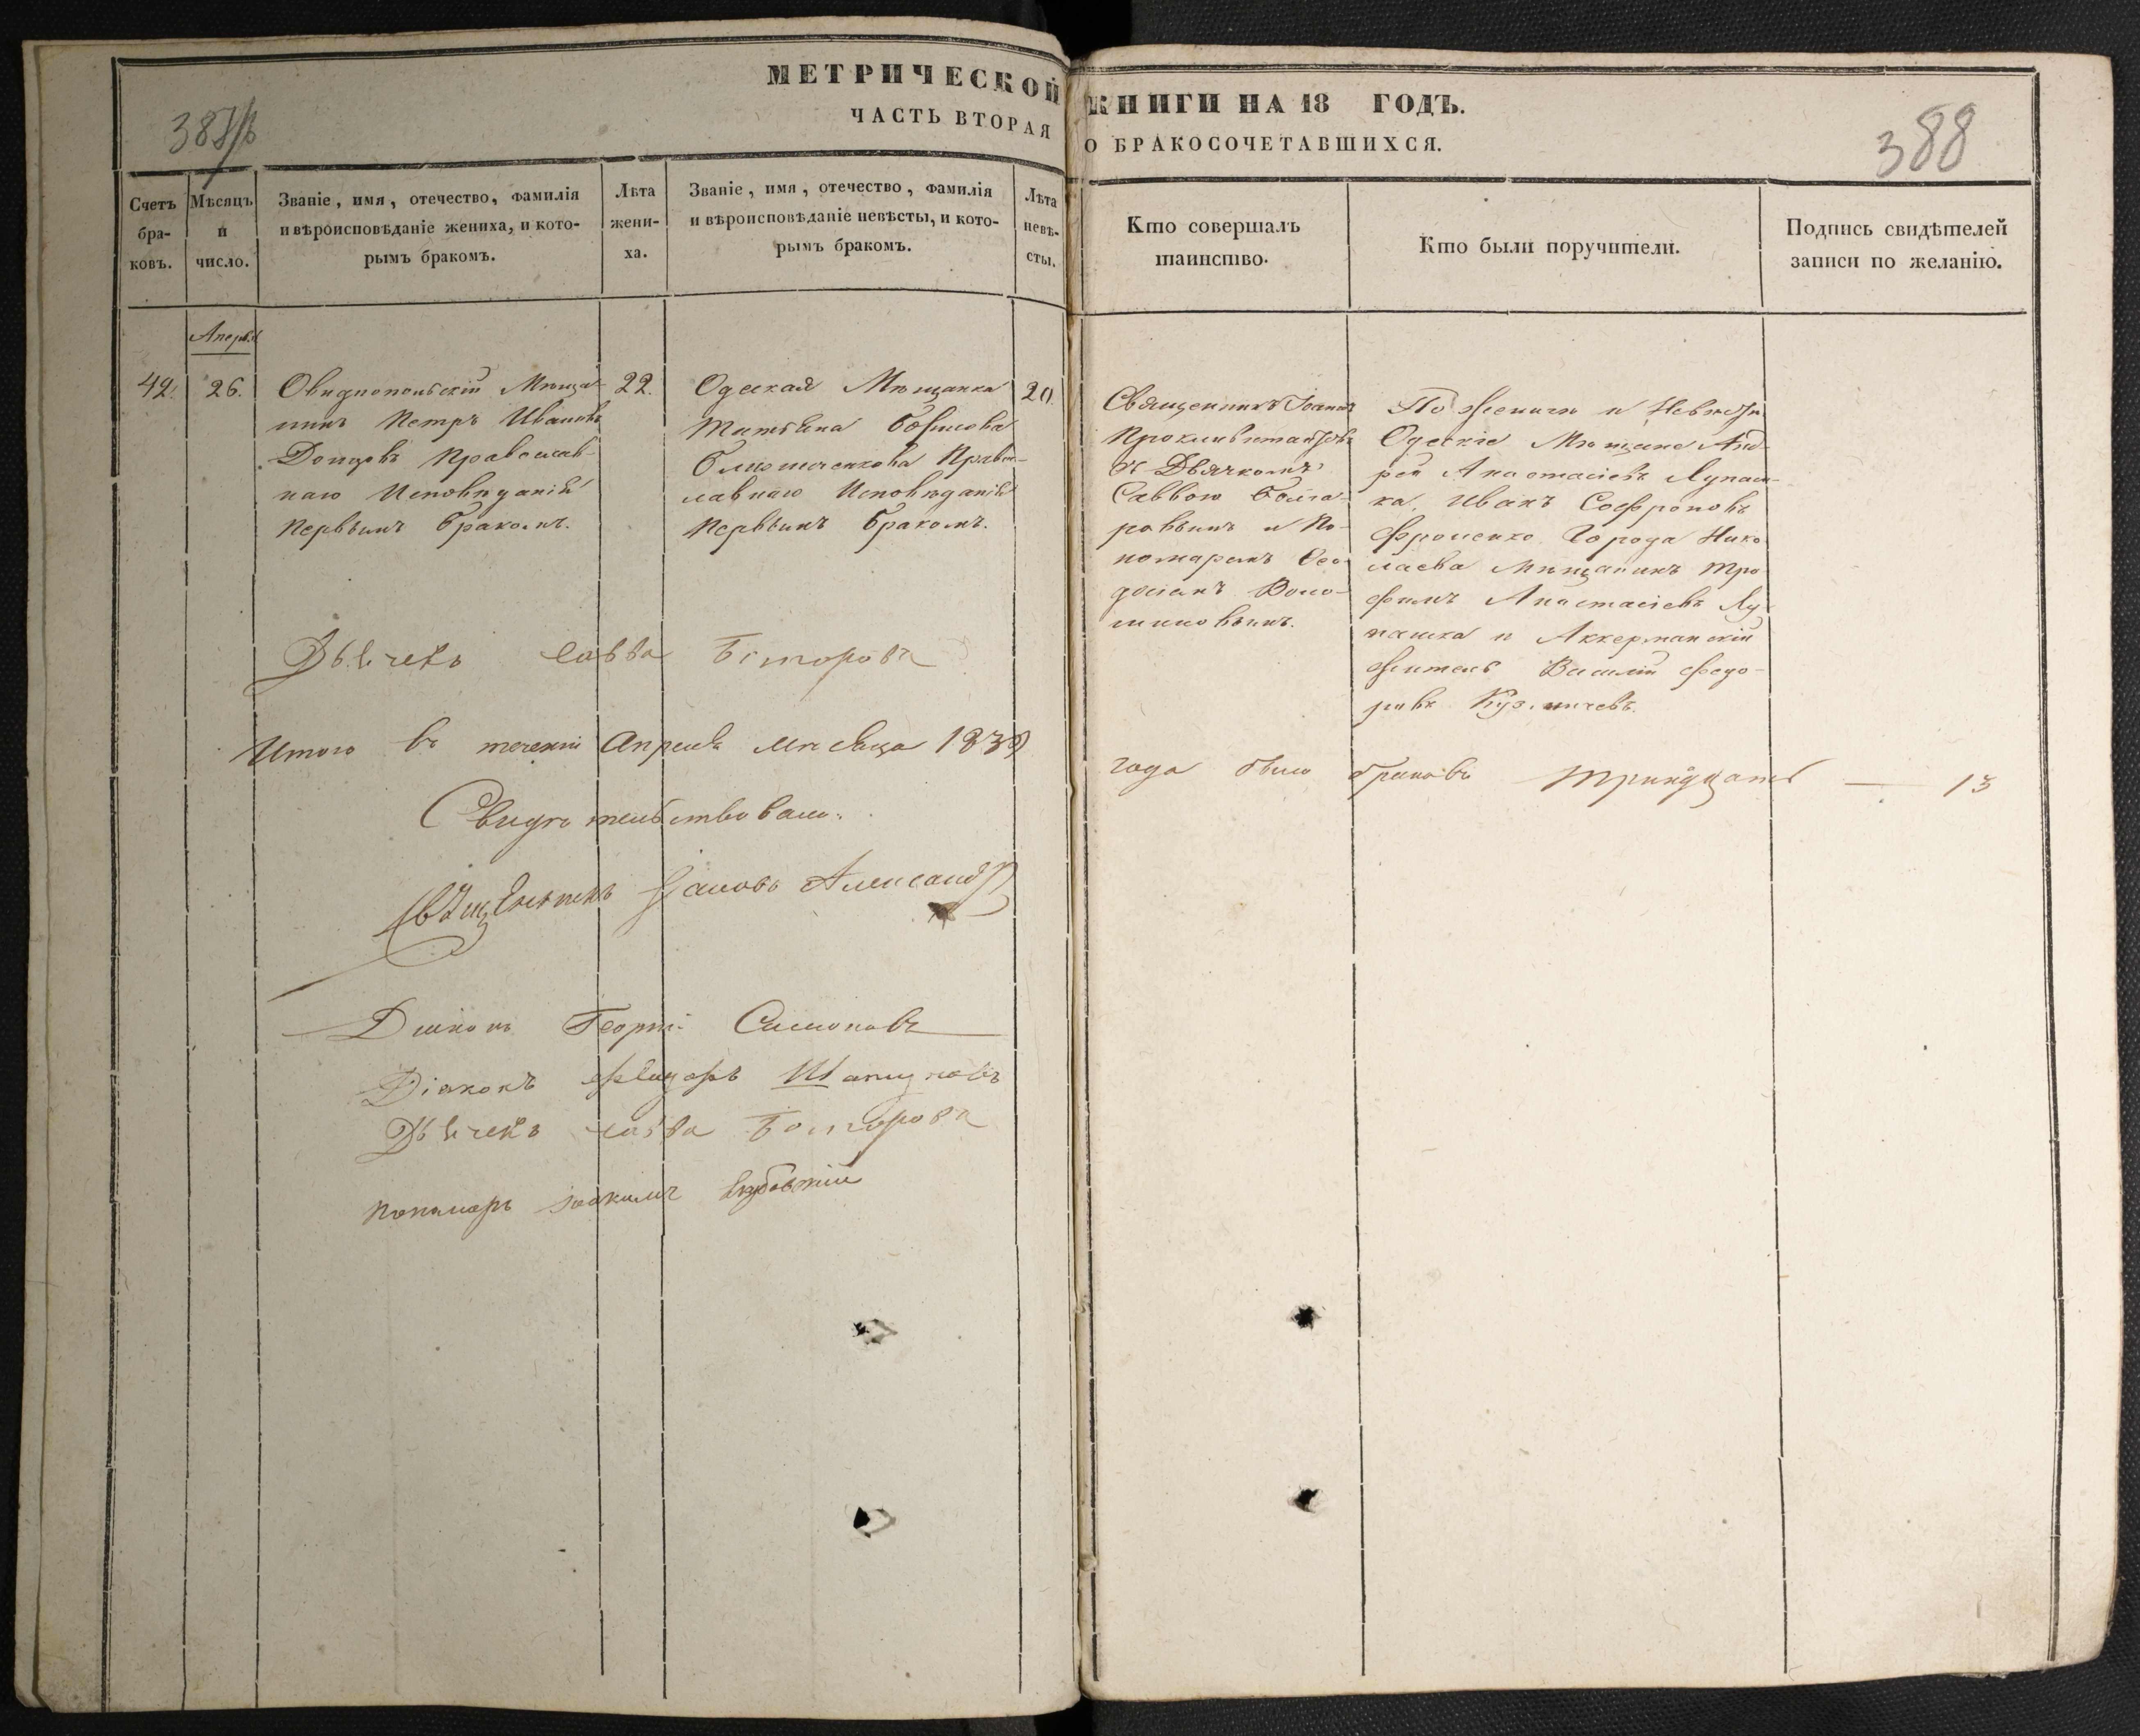 МЕТРИЧЕСКОЙ КНИГИ НА 18 ГОДЪ.
ЧАСТЬ ВТОРАЯ О БРАКОСОЧЕТАВШИХСЯ.
388
Счетъ бра-ковъ.
Мѣсяцъ и число.
Званіе, имя, отечество, фамилія
и вѣроисповѣданіе жениха, и кото-
рымъ бракомъ.
Лѣта жени-ха.
Званіе, имя, отечество, фамилія
и вѣроисповѣданіе невѣсты, и кото-
рымъ бракомъ.
Лѣта невѣ-сты.
Кто совершалъ
таинство.
Кто были поручители.
Подпись свидѣтелей
записи по желанію.
42.
26.
Овидиопольскій Мѣща-
нинъ Петръ Ивановъ
Донцовъ Православ-
наго Исповѣданія
Первымъ бракомъ.
22.
Одеская Мѣщанка
Татьяна
Правос-
лавнаго Исповѣданія
Первымъ бракомъ.
20.
Священникъ Іоаннъ
съ Дьячкомъ
Саввою Болга-
ровымъ и По-
номаремъ Ѳео-
По женихѣ и Невѣсти
Одескіе Мѣщане Анд-
рей Анастасіевъ Лупаш-
ка, Иванъ Софроновъ
Города Нико
лаева Мѣщанинъ Тро
фимъ Анастасіевъ Лу-
пашка и Аккерманскій
житель Василій Федо-
ровъ
савва
Итого въ теченіи Апреля мѣсяца 1839
года было браковъ тринадцать — 13
Свидѣтельствовали:
Священникъ Александр
Георгій Симоновъ
Діаконъ
савва
Пономарь Іоакимъ